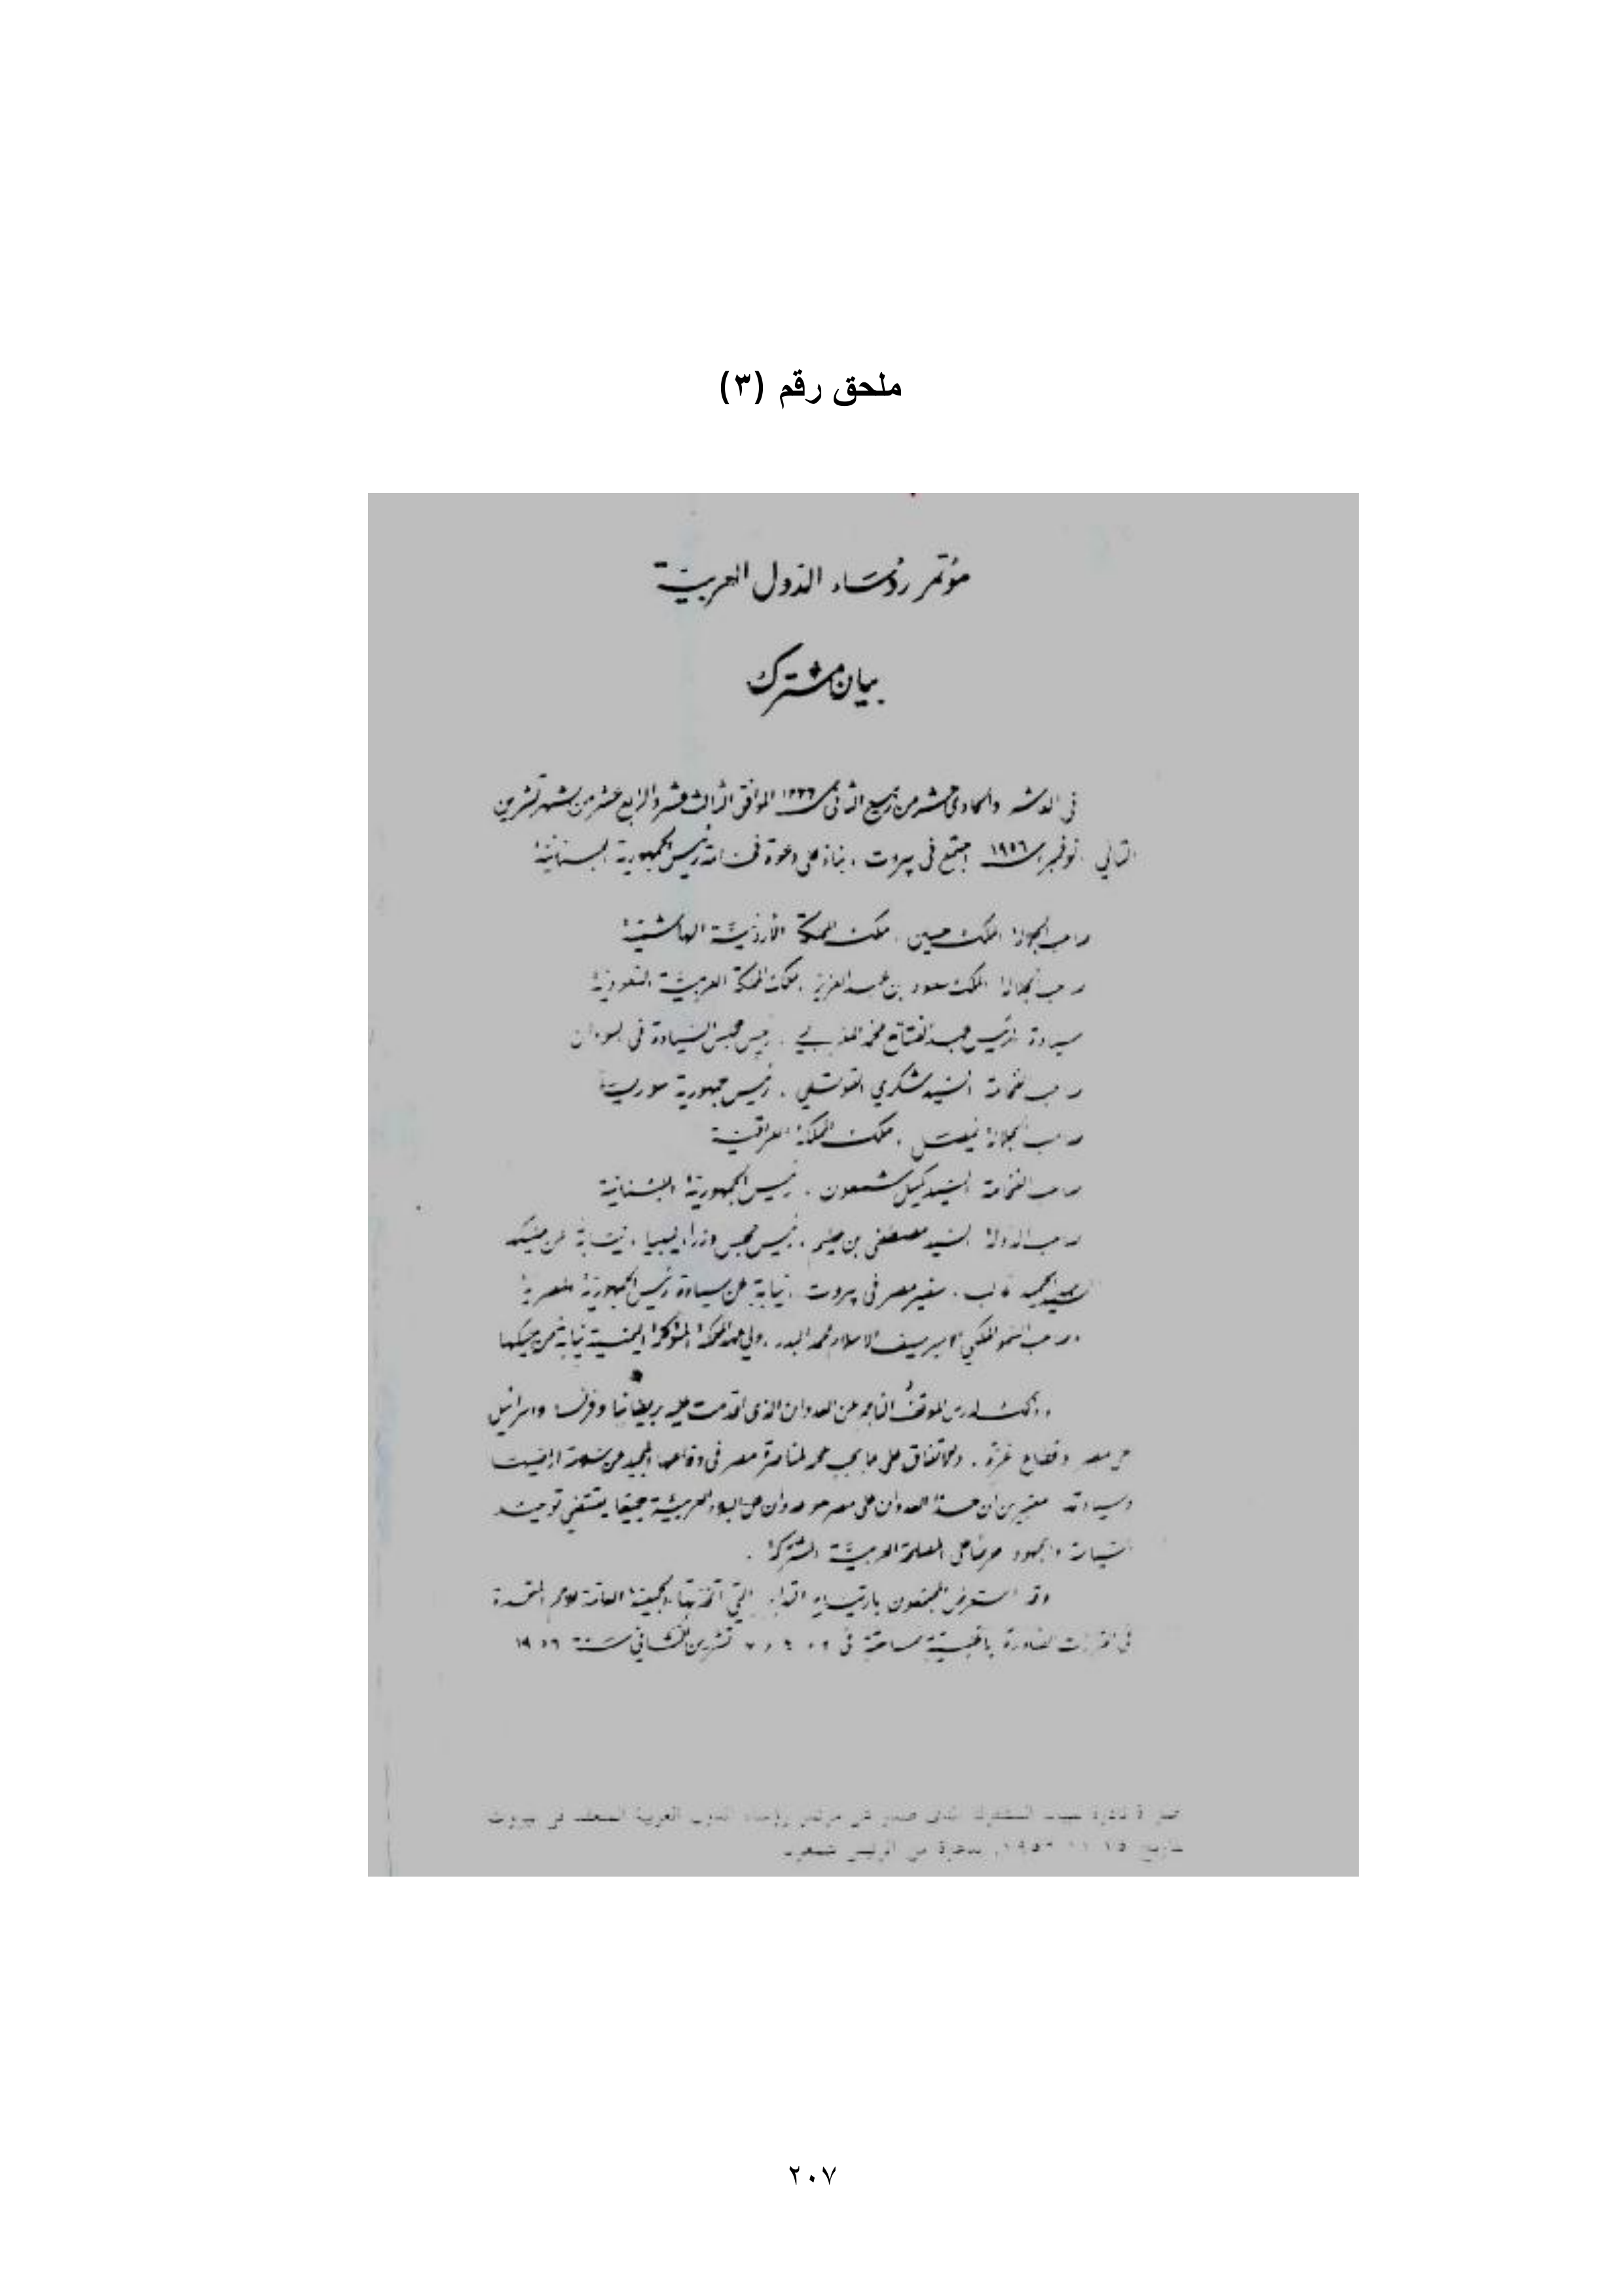 ملحق رقم (٣)
مؤتمر رؤساء الدول العربية
بيان مشترك
في العاشر والحادي عشر من ربيع الثاني سنة ١٣٧٦ الموافق الثالث عشر والرابع عشر من شهر تشرين
الثاني نوفمبر سنة ١٩٥٦ اجتمع في بيروت، بناء على دعوة فخامة رئيس الجمهورية اللبنانية
صاحب الجلالة الملك حسين، ملك المملكة الأردنية الهاشمية
صاحب الجلالة الملك سعود بن عبد العزيز، ملك المملكة العربية السعودية
سيادة الرئيس عبد الفتاح محمد المغربي، رئيس مجلس السيادة في السودان
صاحب الفخامة السيد شكري القوتلي، رئيس جمهورية سوريا
صاحب الجلالة فيصل، ملك المملكة العراقية
صاحب الفخامة السيد كميل شمعون، رئيس الجمهورية اللبنانية
صاحب الدولة السيد مصطفى بن حليم، رئيس مجلس وزراء ليبيا، نيابة عن مليكها
السيد عبد الحميد غالب، سفير مصر في بيروت، نيابة عن سيادة رئيس الجمهورية المصرية
وصاحب السمو الملكي الامير سيف الاسلام محمد البدر، ولي عهد المملكة المتوكلية اليمنية نيابة عن مليكها
وذلك لدرس الموقف الناجم عن العدوان الذي اقدمت عليه بريطانيا وفرنسا واسرائيل
على مصر وقطاع غزة، والاتفاق على ما يجب لمناصرة مصر في دفاعها المجيد عن
وسيادته معتبرين ان هذا العدوان على مصر هو عدوان على البلاد العربية جميعا يقتضي توحيد
والجهود حرصا على المصلحة العربية المشتركة.
وقد استعرض المجتمعون بارتياح التدابير التي اتخذتها الجمعية العامة للامم المتحدة
في القرارات الصادرة باغلبية ساحقة في ٢ و ٤ و ٧ تشرين الثاني سنة ١٩٥٦
صورة نادرة للبيان المشترك الذي صدر عن مؤتمر رؤساء الدول العربية المنعقد في بيروت
بتاريخ ١٥ ١١ ١٩٥٦، بدعوة من الرئيس شمعون
٢٠٧